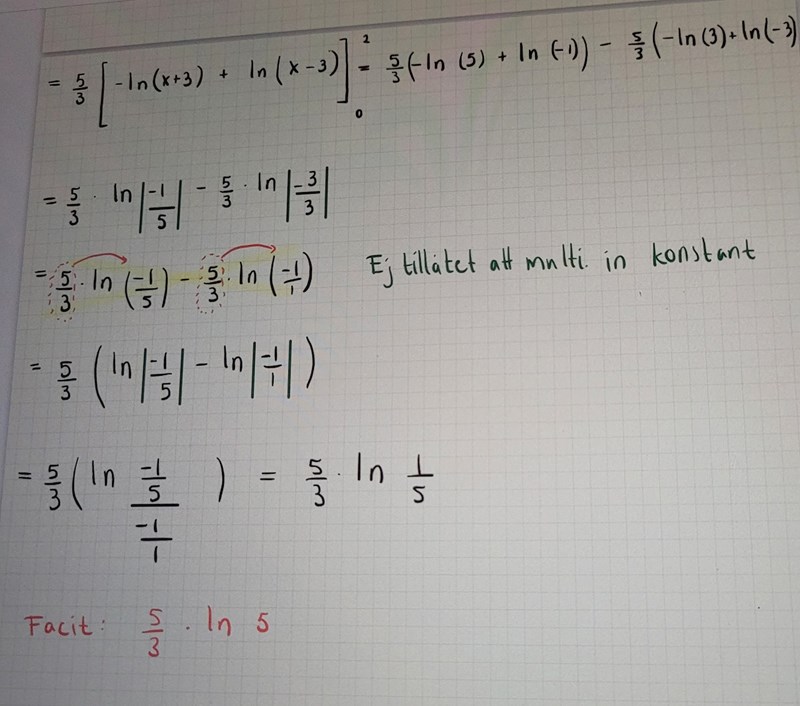 = 5/3 [-ln(x+3) + ln(x-3)]²₀ = 5/3(-ln(5) + ln(-1)) - 5/3(-ln(3)+ln(-3)
= 5/3 · ln|-1/5| - 5/3 · ln|-3/3|
= 5/3 · ln(-1/5) - 5/3 · ln(-1/1) Ej tillåtet att multi. in konstant
= 5/3 (ln|-1/5| - ln|-1/1|)
= 5/3 (ln (-1/5)/(-1/1)) = 5/3 · ln 1/5
Facit: 5/3 · ln 5